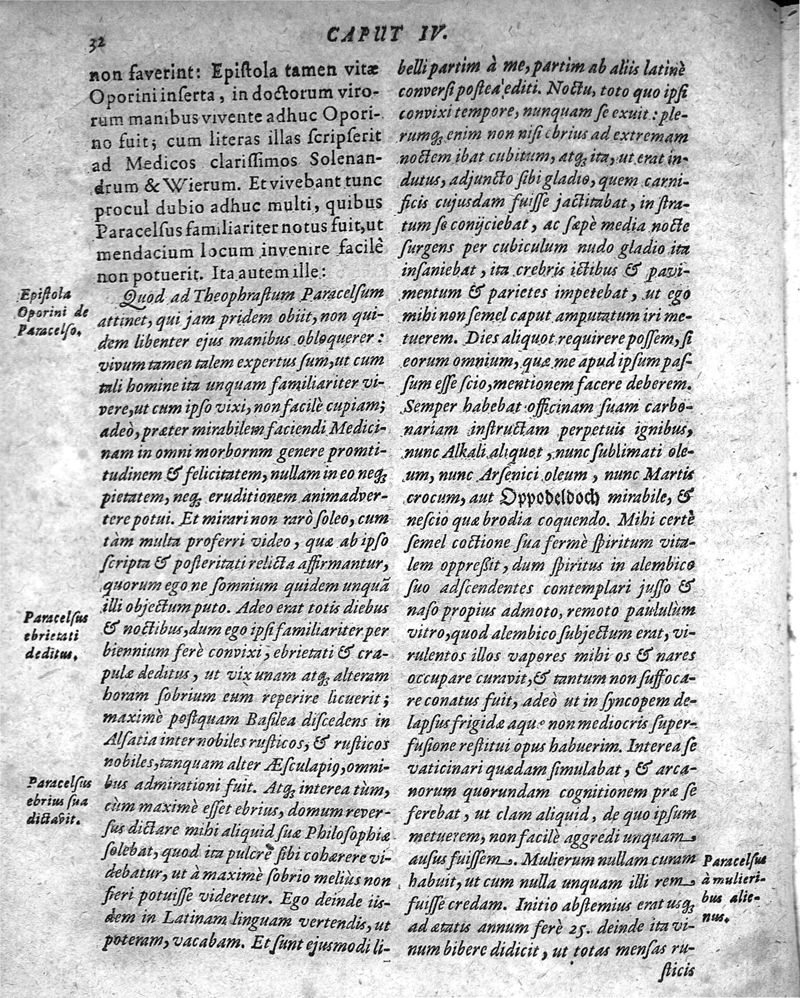 32
CAPUT IV.
non faverint: Epiſtola tamen vitæ
Oporini inſerta, in doctorum viro-
rum manibus vivente adhuc Opori-
no fuit; cum literas illas ſcripſerit
ad Medicos clariſſimos Solenan-
drum & Wierum. Et vivebant tunc
procul dubio adhuc multi, quibus
Paracelſus familiariter notus fuit, ut
mendacium locum invenire facilè
non potuerit. Ita autem ille:
Epiſtola
Oporini de
Paracelſo.
Quod ad Theophraſtum Paracelſum
attinet, qui jam pridem obiit, non qui-
dem libenter ejus manibus obloquerer:
vivum tamen talem expertus ſum, ut cum
tali homine ita unquam familiariter vi-
vere, ut cum ipſo vixi, non facilè cupiam;
adeò, præter mirabilem faciendi Medici-
nam in omni morbornm genere promti-
tudinem & felicitatem, nullam in eo neq;
pietatem, neq; eruditionem animadver-
tere potui. Et mirari non rarò ſoleo, cum
tàm multa proferri video, quæ ab ipſo
ſcripta & poſteritati relicta affirmantur,
quorum ego ne ſomnium quidem unquā
illi objectum puto. Adeo erat totis diebus
Paracelſus
ebrietati
deditus.
& noctibus, dum ego ipſi familiariter per
biennium ferè convixi, ebrietati & cra-
pulæ deditus, ut vix unam atq; alteram
horam ſobrium eum reperire licuerit;
maximè poſtquam Baſilea diſcedens in
Alſatia inter nobiles ruſticos, & ruſticos
nobiles, tanquam alter Æſculapiꝰ, omni-
Paracelſus
ebrius ſua
dictavit.
bus admirationi fuit. Atq; interea tùm,
cùm maximè eſſet ebrius, domum rever-
ſus dictare mihi aliquid ſuæ Philoſophiæ
ſolebat, quod ita pulcrè ſibi cohærere vi-
debatur, ut à maximè ſobrio melius non
fieri potuiſſe videretur. Ego deinde iis-
dem in Latinam linguam vertendis, ut
poteram, vacabam. Et ſunt ejusmodi li-
belli partim à me, partim ab aliis latinè
converſi poſtea editi. Noctu, toto quo ipſi
convixi tempore, nunquam ſe exuit: ple-
rumq; enim non niſi ebrius ad extremam
noctem ibat cubitum, atq; ita, ut erat in-
dutus, adjuncto ſibi gladio, quem carni-
ficis cujusdam fuiſſe jactitabat, in ſtra-
tum ſe conijciebat, ac ſæpè media nocte
ſurgens per cubiculum nudo gladio ita
inſaniebat, ita crebris ictibus & pavi-
mentum & parietes impetebat, ut ego
mihi non ſemel caput amputatum iri me-
tuerem. Dies aliquot requirere poſſem, ſi
eorum omnium, quæ me apud ipſum paſ-
ſum eſſe ſcio, mentionem facere deberem.
Semper habebat officinam ſuam carbo-
nariam inſtructam perpetuis ignibus,
nunc Alkali aliquot, nunc ſublimati ole-
um, nunc Arſenici oleum, nunc Martis
crocum, aut Oppodeldoch mirabile, &
neſcio quæ brodia coquendo. Mihi certè
ſemel coctione ſua fermè ſpiritum vita-
lem oppreſſit, dum ſpiritus in alembico
ſuo adſcendentes contemplari juſſo &
naſo propius admoto, remoto paululùm
vitro, quod alembico ſubjectum erat, vi-
rulentos illos vapores mihi os & nares
occupare curavit, & tantum non ſuffoca-
re conatus fuit, adeò ut in ſyncopem de-
lapſus frigidæ aquæ non mediocris ſuper-
fuſione reſtitui opus habuerim. Interea ſe
vaticinari quædam ſimulabat, & arca-
norum quorundam cognitionem præ ſe
ferebat, ut clam aliquid, de quo ipſum
metuerem, non facilè aggredi unquam
auſus fuiſſem. Mulierum nullam curam
Paracelſus
à mulieri-
bus alie-
nus.
habuit, ut cum nulla unquam illi rem
fuiſſe credam. Initio abſtemius erat usq;
ad ætatis annum ferè 25. deinde ita vi-
num bibere didicit, ut totas menſas ru-
ſticis